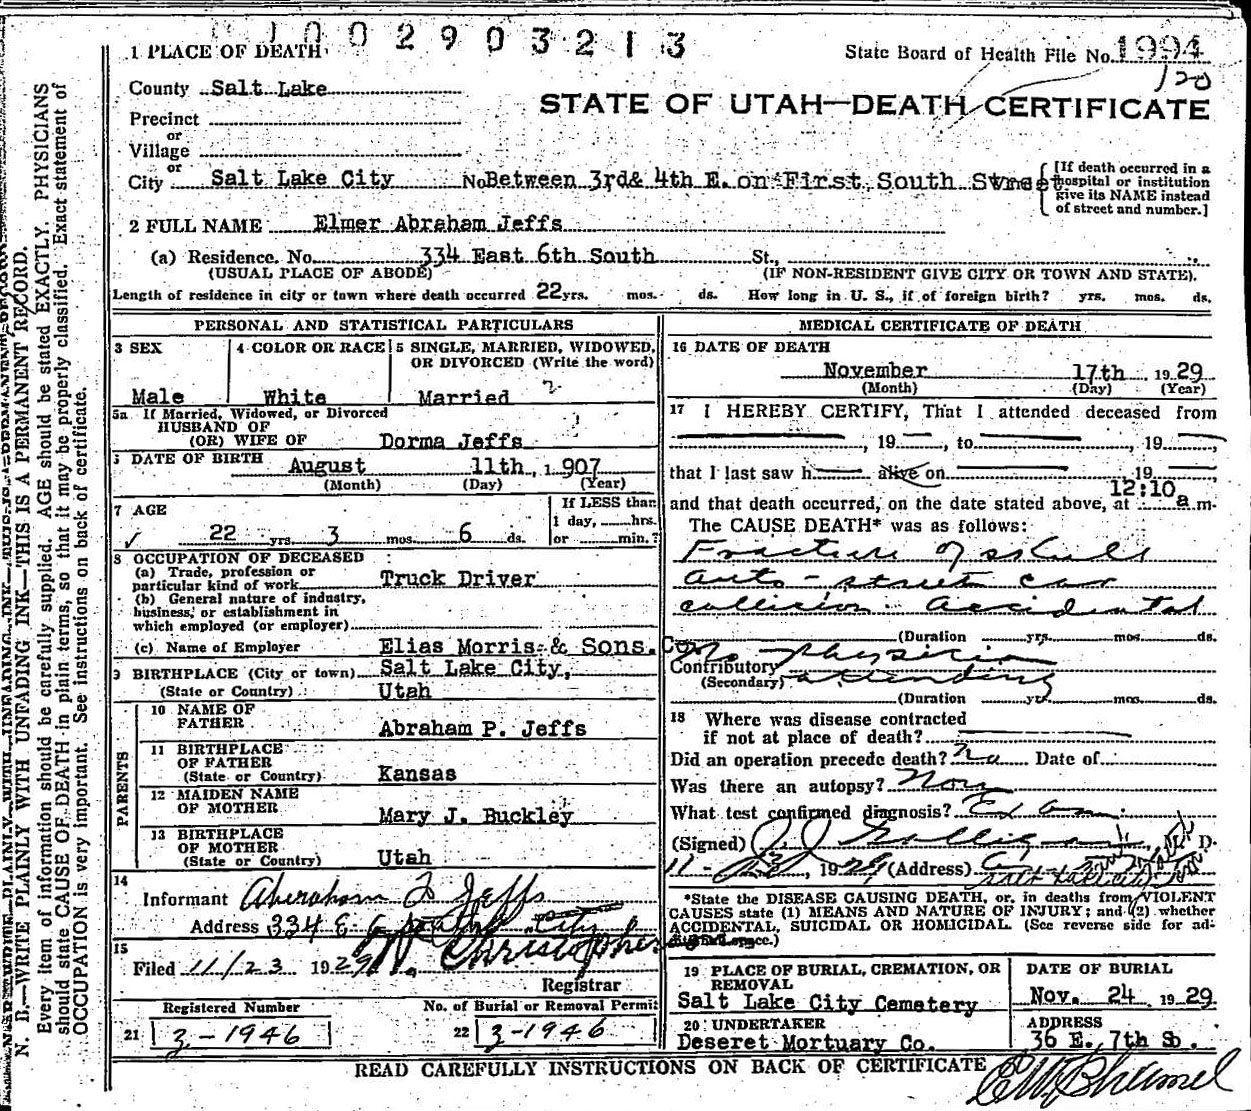 1002903213
1 PLACE OF DEATH
State Board of Health File No. 1994
120
County Salt Lake
STATE OF UTAH—DEATH CERTIFICATE
Precinct
or
Village
or
City Salt Lake City No Between 3rd& 4th E. on First South Street
[If death occurred in a hospital or institution give its NAME instead of street and number.]
2 FULL NAME Elmer Abraham Jeffs
(a) Residence. No. 334 East 6th South St.,
(USUAL PLACE OF ABODE) (IF NON-RESIDENT GIVE CITY OR TOWN AND STATE).
Length of residence in city or town where death occurred 22 yrs. mos. ds. How long in U. S., if of foreign birth? yrs. mos. ds.
PERSONAL AND STATISTICAL PARTICULARS
3 SEX
Male
4 COLOR OR RACE
White
5 SINGLE, MARRIED, WIDOWED,
OR DIVORCED (Write the word)
Married
5a If Married, Widowed, or Divorced
HUSBAND OF
(OR) WIFE OF Dorma Jeffs
DATE OF BIRTH August 11th, 1907
(Month) (Day) (Year)
7 AGE
22 yrs. 3 mos. 6 ds.
If LESS than
1 day, hrs.
or min.?
8 OCCUPATION OF DECEASED
(a) Trade, profession or
particular kind of work Truck Driver
(b) General nature of industry,
business, or establishment in
which employed (or employer)
(c) Name of Employer Elias Morris & Sons. Co.
9 BIRTHPLACE (City or town) Salt Lake City,
(State or Country) Utah
PARENTS
10 NAME OF
FATHER Abraham P. Jeffs
11 BIRTHPLACE
OF FATHER
(State or Country) Kansas
12 MAIDEN NAME
OF MOTHER Mary J. Buckley
13 BIRTHPLACE
OF MOTHER
(State or Country) Utah
14
Informant Jeffs
Address 334 E. 6 South City
15
Filed 11/23 1929 Christopherson
Registrar
Registered Number
21 3-1946
No. of Burial or Removal Permit
22 3-1946
MEDICAL CERTIFICATE OF DEATH
16 DATE OF DEATH
November 17th 1929
(Month) (Day) (Year)
17 I HEREBY CERTIFY, That I attended deceased from
, 19 , to , 19 ,
that I last saw h alive on 19
and that death occurred, on the date stated above, at 12:10 a m.
The CAUSE DEATH* was as follows:
Fracture of skull
auto - street car
collision. Accidental
(Duration yrs. mos. ds.
No physician
Contributory
(Secondary) attending
(Duration yrs. mos. ds.
18 Where was disease contracted
if not at place of death?
Did an operation precede death? no Date of
Was there an autopsy? None
What test confirmed diagnosis? Exam.
(Signed) M. D.
11- 1929 (Address)
*State the DISEASE CAUSING DEATH, or, in deaths from VIOLENT
CAUSES state (1) MEANS AND NATURE OF INJURY; and (2) whether
ACCIDENTAL, SUICIDAL OR HOMICIDAL. (See reverse side for ad-
ditional space.)
19 PLACE OF BURIAL, CREMATION, OR
REMOVAL
Salt Lake City Cemetery
DATE OF BURIAL
Nov. 24 1929
20 UNDERTAKER
Deseret Mortuary Co.
ADDRESS
36 E. 7th So.
READ CAREFULLY INSTRUCTIONS ON BACK OF CERTIFICATE
N. B.—WRITE PLAINLY WITH UNFADING INK—THIS IS A PERMANENT RECORD.
Every item of information should be carefully supplied. AGE should be stated EXACTLY. PHYSICIANS
should state CAUSE OF DEATH in plain terms, so that it may be properly classified. Exact statement of
OCCUPATION is very important. See instructions on back of certificate.